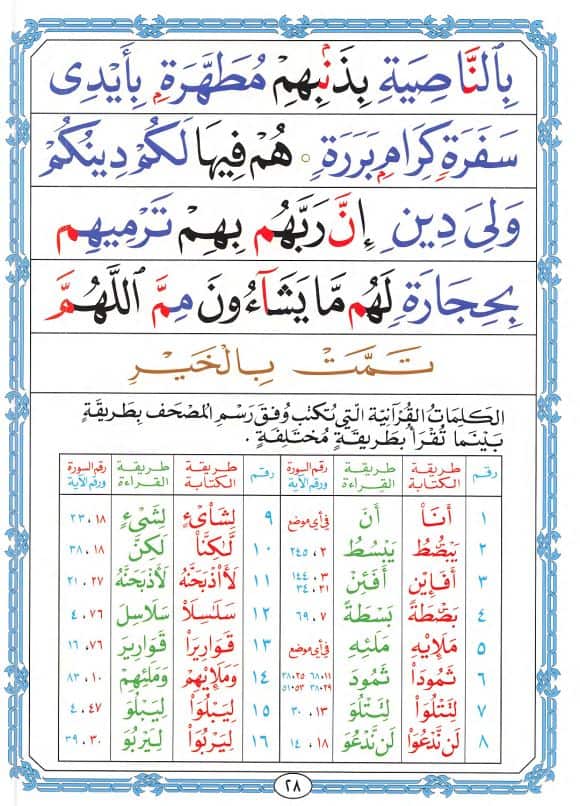 بِٱلنَّاصِيَةِ بِذَنۢبِهِمْ مُطَهَّرَةٍۭ بِأَيْدِى
سَفَرَةٍ كِرَامٍۭ بَرَرَةٍ ۝ هُمْ فِيهَا لَكُمْ دِينُكُمْ
وَلِىَ دِينِ إِنَّ رَبَّهُم بِهِمْ تَرْمِيهِم
بِحِجَارَةٍ لَهُم مَّا يَشَآءُونَ مِمَّ ٱللَّهُمَّ
تَمَّتْ بِالْخَيْرِ
الكَلِمَاتُ القُرْآنِيَّة الَّتِي تُكتَبُ وُفقَ رَسْمِ المُصْحَف بِطَرِيقَةٍ
بَيْنَمَا تُقْرَأُ بطَرِيقَةٍ مُخْتَلِفَةٍ .
رقم طريقة الكتابة طريقة القراءة رقم السورة ورقم الآية رقم طريقة الكتابة طريقة القراءة رقم السورة ورقم الآية
١ أَنَا۠ أَنَ في أي موضع ٩ لِشَا۟ىْءٍ لِشَىْءٍ ١٨، ٢٣
٢ يَبْصُۜطُ يَبْسُطُ ٢، ٢٤٥ ١٠ لَّٰكِنَّا۠ لَٰكِنَّ ١٨، ٣٨
٣ أَفَإِي۟ن أَفَئِنْ ٣، ١٤٤ ٢١، ٣٤ ١١ لَأَا۟ذْبَحَنَّهُ لَأَذْبَحَنَّهُ ٢٧، ٢١
٤ بَصْۜطَةً بَسْطَةً ٧، ٦٩ ١٢ سَلَٰسِلَا۟ سَلَاسِلَ ٧٦، ٤
٥ مَلَإِي۟هِ مَلَئِهِ في أي موضع ١٣ قَوَارِيرَا۟ قَوَارِيرَ ٧٦، ١٦
٦ ثَمُودَا۟ ثَمُودَ ١١، ٦٨ ٢٥، ٣٨ ٢٩، ٣٨ ٥٣، ٥١ ١٤ وَمَلَإِي۟هِمْ وَمَلَئِهِمْ ١٠، ٨٣
٧ لِتَتْلُوَا۟ لِتَتْلُوَ ١٣، ٣٠ ١٥ لِيَبْلُوَا۟ لِيَبْلُوَ ٤٧، ٤
٨ لَن نَّدْعُوَا۟ لَن نَّدْعُوَ ١٨، ١٤ ١٦ لِيَرْبُوَا۟ لِيَرْبُوَ ٣٠، ٣٩
٢٨